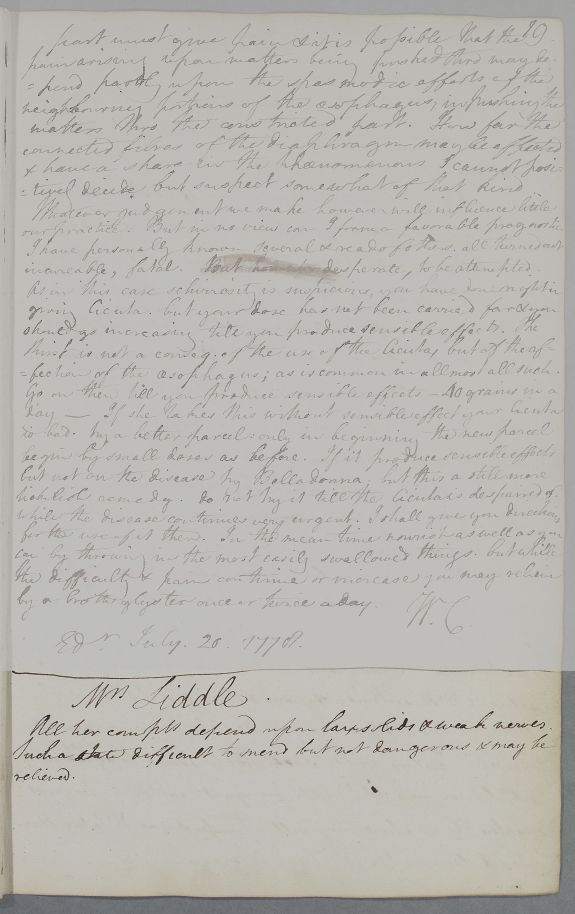 19.
part must give pain & it is possible that the
pain arising upon matters being pushed thro may de-
=pend partly upon the spasmodic efforts of the
neighbouring portions of the œsophagus, in pushing the
matters thro the constricted part. How far the
connected fibres of the diaphragm may be affected
& have a share in the phænomenons I cannot posi-
=tively decide but suspect somewhat of that kind
Whatever judgement we make however will influence little
our practice. But in no view can I form a favorable prognostic.
I have personally known several & read of others. all turned out
incureable, fatal. But however desperate, to be attempted.
As in this case schirrosity is suspicious, you have done right in
giving Cicuta. but your dose has not been carried far & you
should go increasing till you produce sensible effects. The
thirst is not a conseq. of the use of the Cicuta, but of the af-
=fection of the œsophagus; as is common in allmost all such.
Go on then till you produce sensible effects - 40 grains in a
day — If she takes this without sensible effect your Cicuta
is bad. try a better parcel: only in beginning the new parcel
begin by small doses as before. If it produce sensible effects
but not on the disease try Belladonna; but this a still more
ticklish remedy. do not try it till the Cicuta is despaired of,
while the disease continues very urgent. I shall give you directions
for the use of it then. In the mean time nourish as well as you
can by throwing in the most easily swallowed things. but while
the difficulty & pain continue or increase you may relieve
by a broth glyster once or twice a day. W. C.
Edr. July. 20. 1778.
Mrs Liddle.
All her complts depend upon lax solids & weak nerves.
Such a state difficult to mend but not dangerous & may be
relieved.